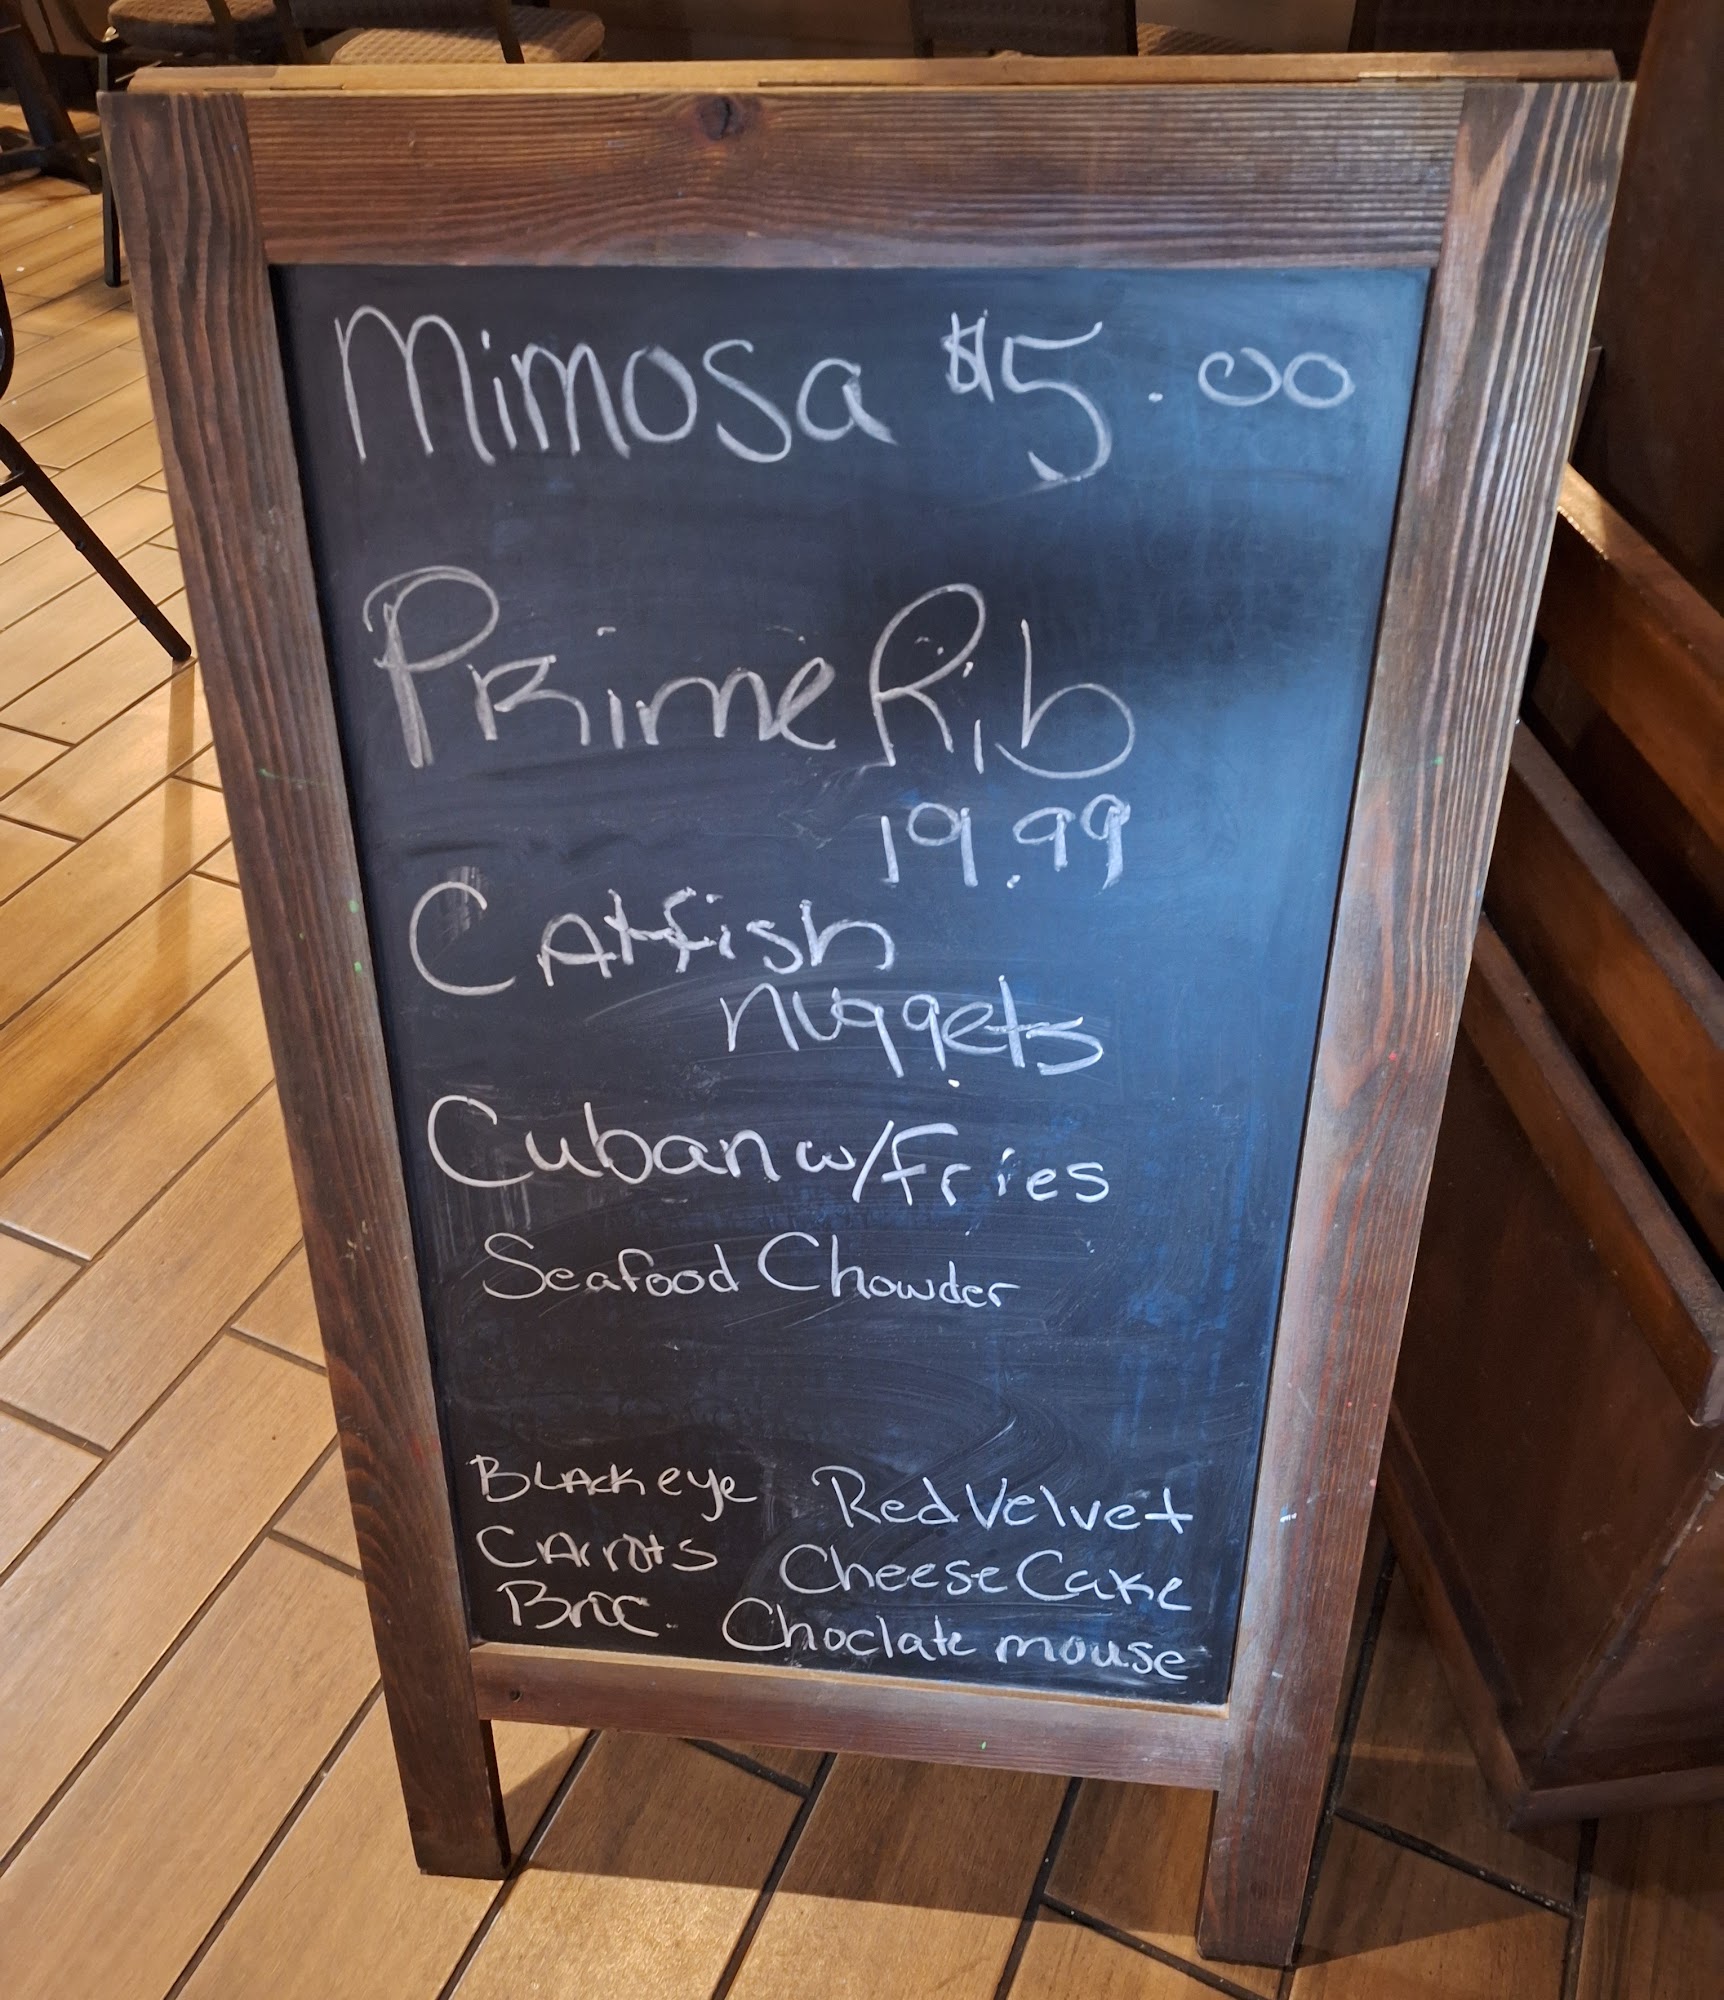 Mimosa $5.00
Prime Rib
19.99
Catfish
nuggets
Cuban w/fries
Seafood Chowder
Blackeye
Carrots
Broc.
Red Velvet
Cheese Cake
Choclate mouse